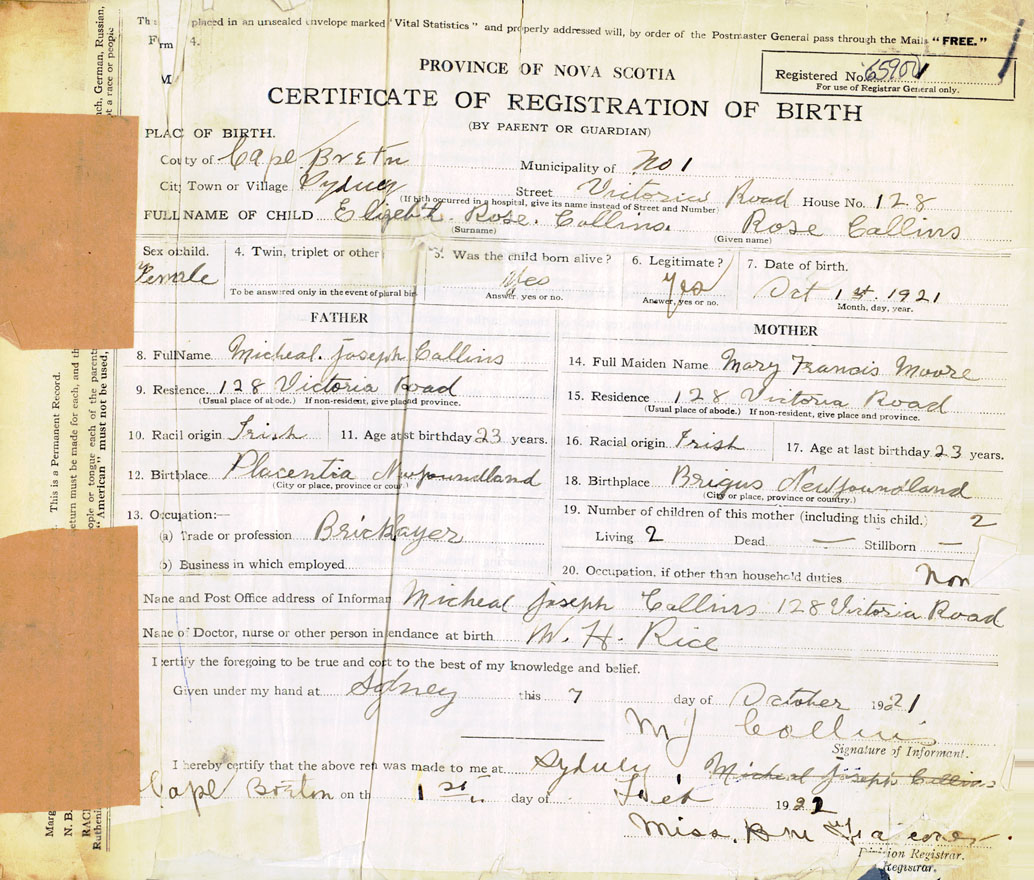 placed in an unsealed envelope marked "Vital Statistics" and properly addressed will, by order of the Postmaster General pass through the Mails "FREE."
F rm 4.
PROVINCE OF NOVA SCOTIA
Registered No. 65900
For use of Registrar General only.
CERTIFICATE OF REGISTRATION OF BIRTH
(BY PARENT OR GUARDIAN)
PLAC OF BIRTH.
Coty of Cape Bretn Municipality of No 1
City Town or Village Sydney Street Victoria Road House No. 128
(If bith occurred in a hospital, give its name instead of Street and Number)
FULL NAME OF CHILD Elizebth Rose. Collins. Rose Collins
(Surname) (Given name)
Sex o child. 4. Twin, triplet or other 5. Was the child born alive? 6. Legitimate? 7. Date of birth.
Female Yes Yes Oct 1st. 1921
To be answered only in the event of plural bir Answer yes or no. Answer, yes or no. Month, day, year.
FATHER MOTHER
8. Full Name Micheal. Joseph Collins 14. Full Maiden Name Mary Francis Moore
9. Resience. 128 Victoria Road 15. Residence 128 Victoria Road
(Usual place of abode.) If non-resident, give plac nd province. (Usual place of abode.) If non-resident, give place and province.
10. Racil origin Irish 11. Age at st birthday 23 years. 16. Racial origin Irish 17. Age at last birthday 23 years.
12. Birthplace Placentia Newfoundland 18. Birthplace Brigus Newfoundland
(City or place, province or cou (City or place, province or country.)
13. Occupation:— 19. Number of children of this mother (including this child.) 2
(a) Trade or profession Bricklayer Living 2 Dead — Stillborn —
b) Business in which employed 20. Occupation, if other than household duties Non
Name and Post Office address of Informan Micheal Joseph Collins 128 Victoria Road
Name of Doctor, nurse or other person in endance at birth W. H. Rice
I certify the foregoing to be true and cor ct to the best of my knowledge and belief.
Given under my hand at Sydney this 7 day of October 1921
M J Collins
Signature of Informant.
I hereby certify that the above re n was made to me at Sydney Micheal Joseph Collins
Cape Breton on th 1st day of Feb 1922
Miss.
Division Registrar.
Registrar.
This is a Permanent Record.
"American" must not be used,